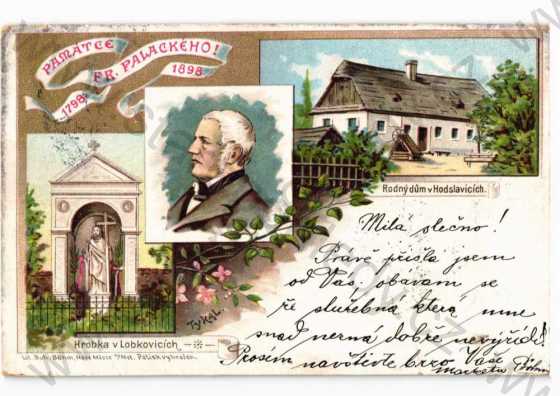 PAMÁTCE
FR. PALACKÉHO!
1798 1898
Rodný dům v Hodslavicích.
Milá slečno!
Právě přišla jsem
od Vás, obávam se
že služebná která mne
snad nezná dobře nevyřídí.
Prosím navštivte brzo Vaše
Markéta
Tykal
Hrobka v Lobkovicích
Lit. Rud. Böhm, Nové Město n/Met. Patisk vyhražen.